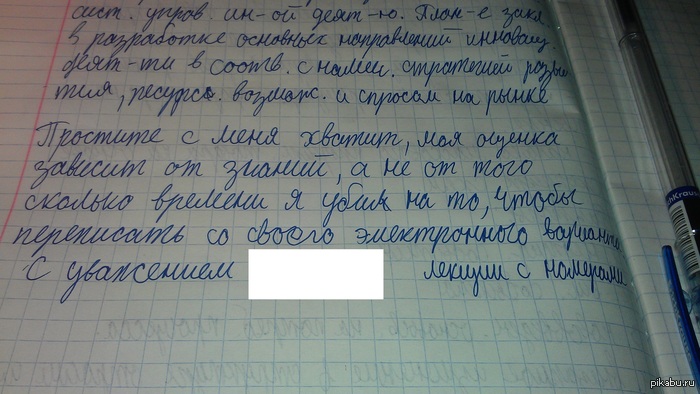 сист. упров. ин-ой деят-ю. План-е закл
в разработке основных направлений инновац.
деят-ти в соотв. с намеч. стратегией разви
тия, ресурсо. возмож. и спросом на рынке
Простите с меня хватит, моя оценка
зависит от знаний, а не от того
сколько времени я убил на то, чтобы
переписать со своего электронного варианта
С уважением лекции с номерами
Krause
pikabu.ru